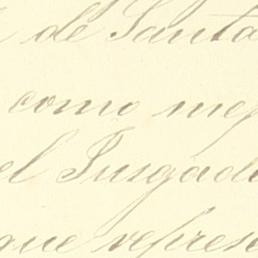 de Santa
como mej
el Jusgado
que represe